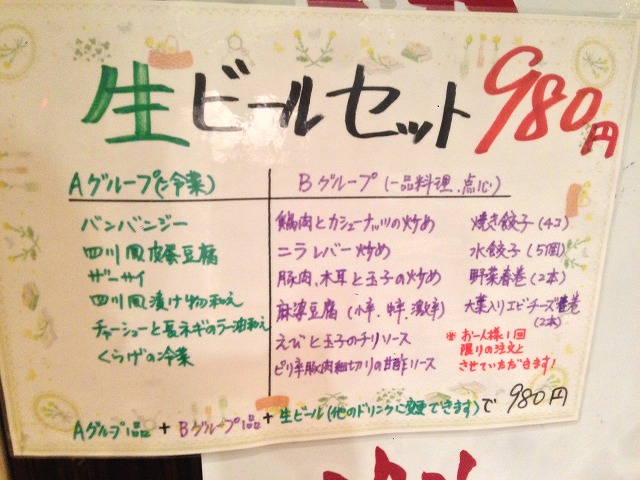 生ビールセット 980円
Aグループ(冷菜)
バンバンジー
四川風皮蛋豆腐
ザーサイ
四川風漬け物和え
チャーシューと長ネギのラー油和え
くらげの冷菜
Bグループ(一品料理、点心)
鶏肉とカシューナッツの炒め
ニラレバー炒め
豚肉、木耳と玉子の炒め
麻婆豆腐(小辛、中辛、激辛)
えびと玉子のチリソース
ピリ辛豚肉細切りの甘酢ソース
焼き餃子(4コ)
水餃子(5個)
野菜春巻(2本)
大葉入りエビチーズ春巻
(2本)
※お一人様1回
限りの注文と
させていただきます!
Aグループ1品+Bグループ1品+生ビール(他のドリンクに変更できます)で 980円